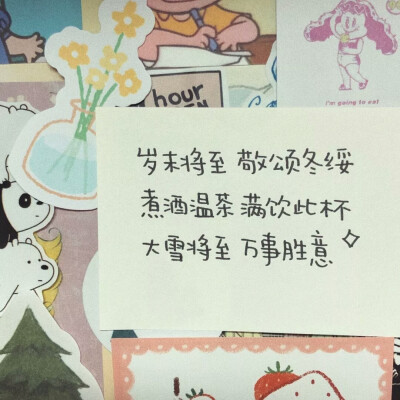 hour
I'm going to eat
岁末将至 敬颂冬绥
煮酒温茶 满饮此杯
大雪将至 万事胜意